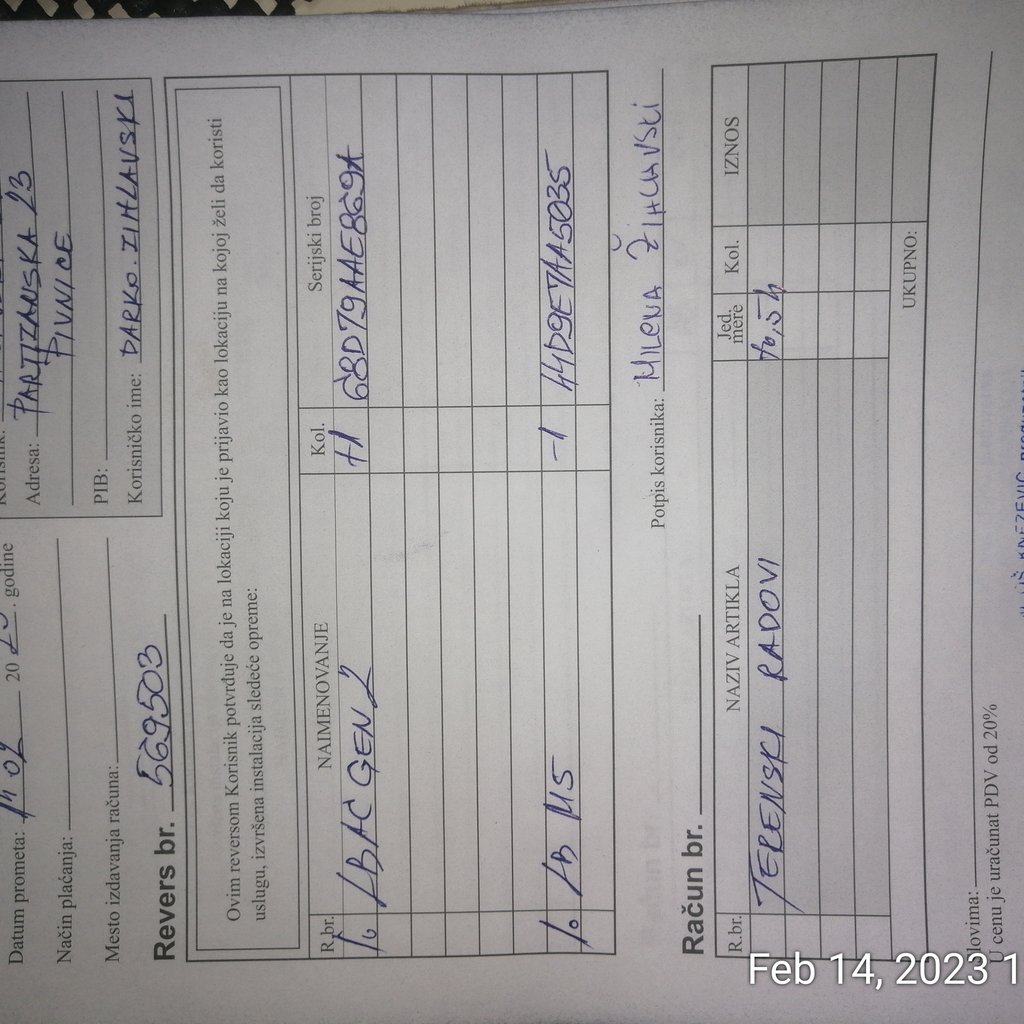 Datum prometa: 02 20 23. godine
Način plaćanja:
Mesto izdavanja računa:
Adresa: PARTIZANSKA 23
PIVNICE
PIB:
Korisničko ime: DARKO.ZIHLAVSKI
Revers br. 569503
Ovim reversom Korisnik potvrđuje da je na lokaciji koju je prijavio kao lokaciju na kojoj želi da koristi
uslugu, izvršena instalacija sledeće opreme:
R.br. NAIMENOVANJE Kol. Serijski broj
1. LBAC GEN 2 +1 68D79AAE869A
1. LB M5 -1 44D9E7AA5035
Potpis korisnika: MILENA ŽIHLAVSKI
Račun br.
R.br. NAZIV ARTIKLA Jed. mere Kol. IZNOS
TERENSKI RADOVI
UKUPNO:
U cenu je uračunat PDV od 20%
Feb 14, 2023 1